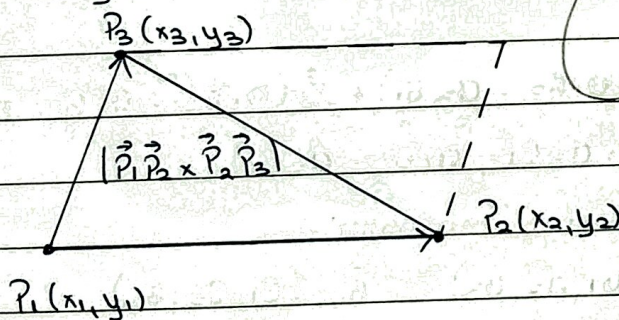 P₃(x₃,y₃)
|P⃗₁P⃗₂ × P⃗₂P⃗₃|
P₂(x₂,y₂)
P₁(x₁,y₁)